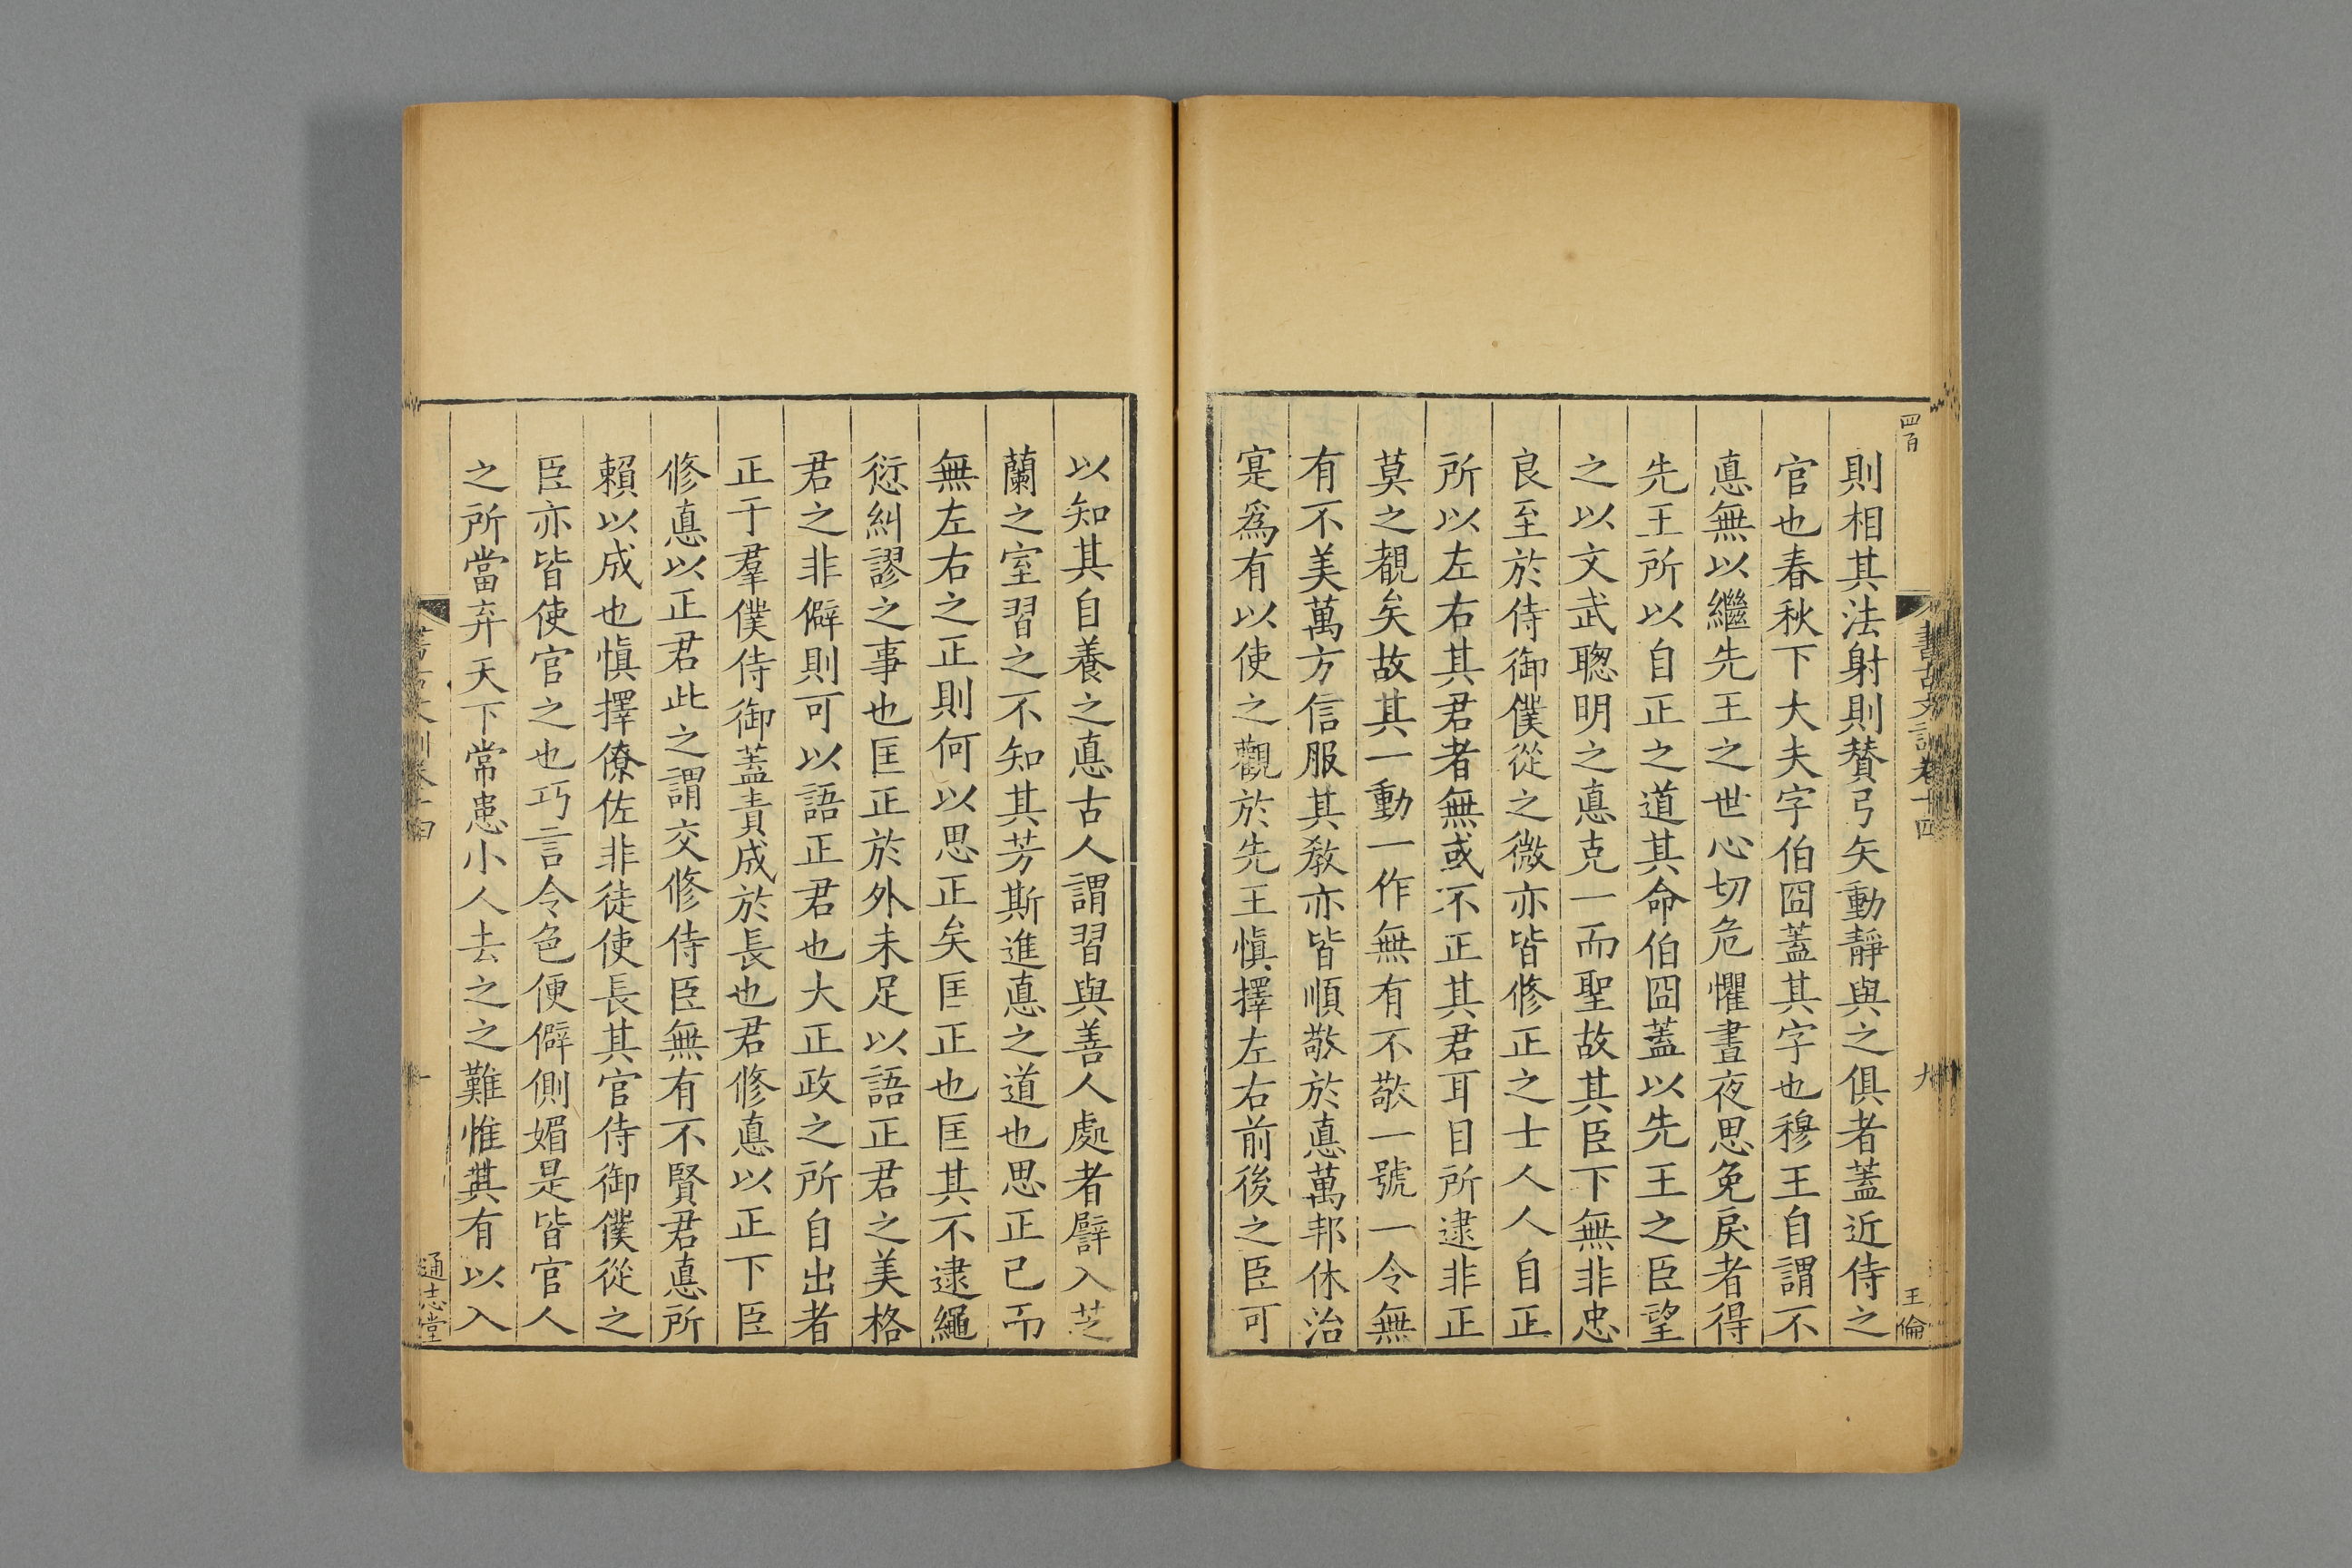 四百
書古文訓卷十四
九
王倫
則相其法射則賛弓矢動靜與之俱者蓋近侍之
官也春秋下大夫字伯囧蓋其字也穆王自謂不
悳無以繼先王之世心切危懼晝夜思免戾者得
先王所以自正之道其命伯囧蓋以先王之臣望
之以文武聦明之悳克一而聖故其臣下無非忠
良至於侍御僕從之微亦皆修正之士人人自正
所以左右其君者無或不正其君耳目所逮非正
莫之覩矣故其一動一作無有不敬一號一令無
有不美萬方信服其敎亦皆順敬於悳萬邦休治
寔爲有以使之觀於先王愼擇左右前後之臣可
以知其自養之悳古人謂習與善人處者譬入芝
蘭之室習之不知其芳斯進悳之道也思正己而
無左右之正則何以思正矣匡正也匡其不逮繩
愆糾謬之事也匡正於外未足以語正君之美格
君之非僻則可以語正君也大正政之所自出者
正于羣僕侍御蓋責成於長也君修悳以正下臣
修悳以正君此之謂交修侍臣無有不賢君悳所
賴以成也愼擇僚佐非徒使長其官侍御僕從之
臣亦皆使官之也巧言令色便僻側媚是皆官人
之所當弃天下常患小人去之之難惟其有以入
通志堂